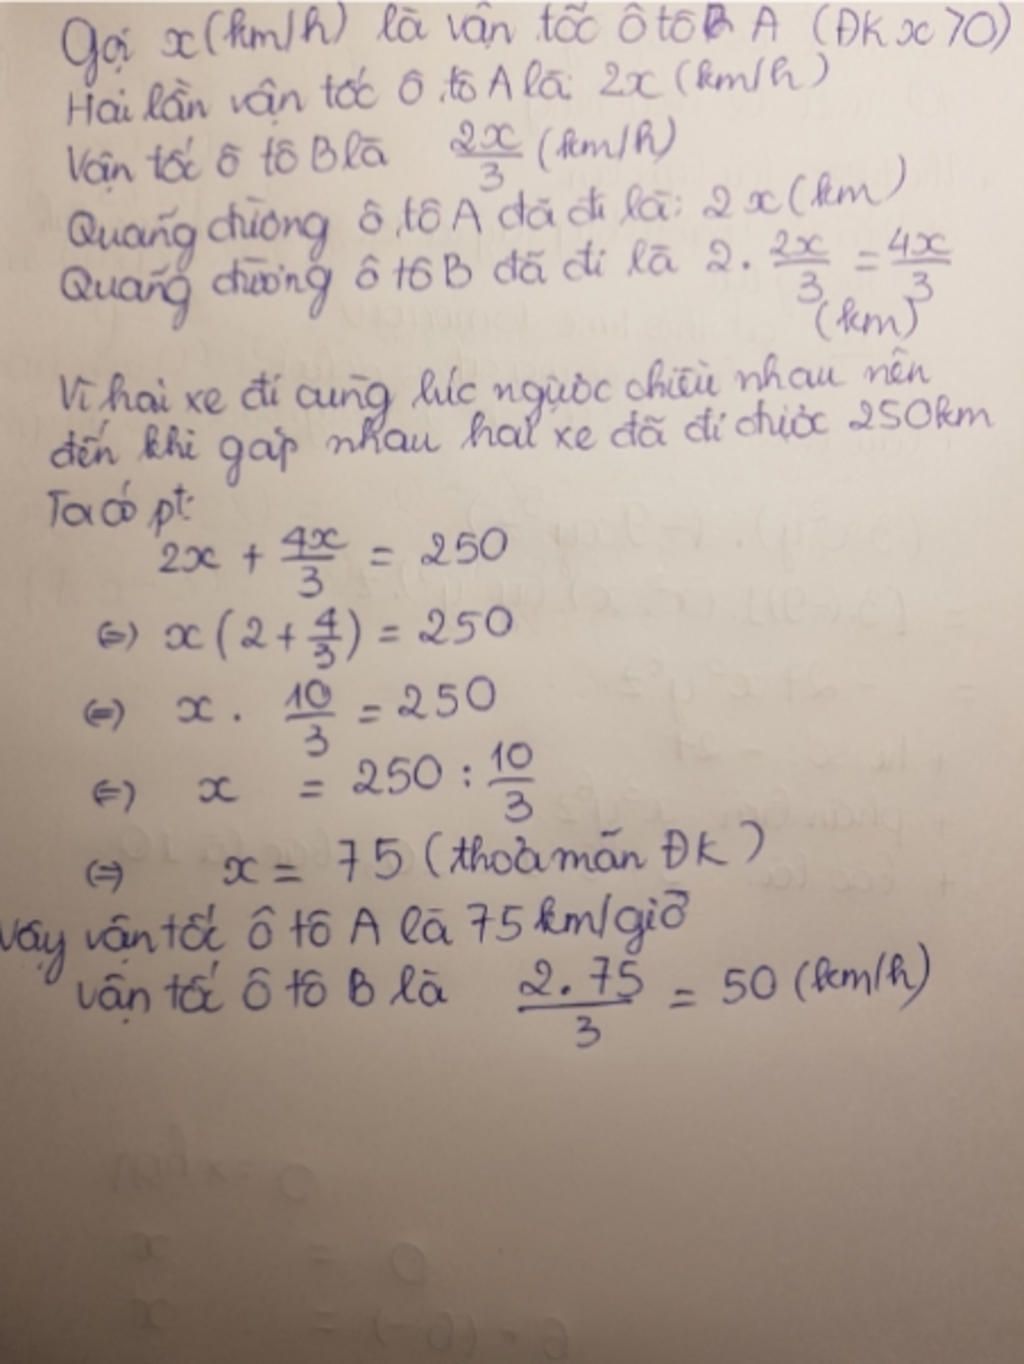 Gọi x(km/h) là vận tốc ô tô A (ĐK x>0)
Hai lần vận tốc ô tô A là: 2x (km/h)
Vận tốc ô tô B là 2x/3 (km/h)
Quãng đường ô tô A đã đi là: 2x (km)
Quãng đường ô tô B đã đi là 2 . 2x/3 = 4x/3
(km)
Vì hai xe đi cùng lúc ngược chiều nhau nên
đến khi gặp nhau hai xe đã đi được 250km
Ta có pt:
2x + 4x/3 = 250
⇔ x(2 + 4/3) = 250
⇔ x . 10/3 = 250
⇔ x = 250 : 10/3
⇔ x = 75 (thoả mãn ĐK)
Vậy vận tốc ô tô A là 75 km/giờ
vận tốc ô tô B là 2.75/3 = 50 (km/h)